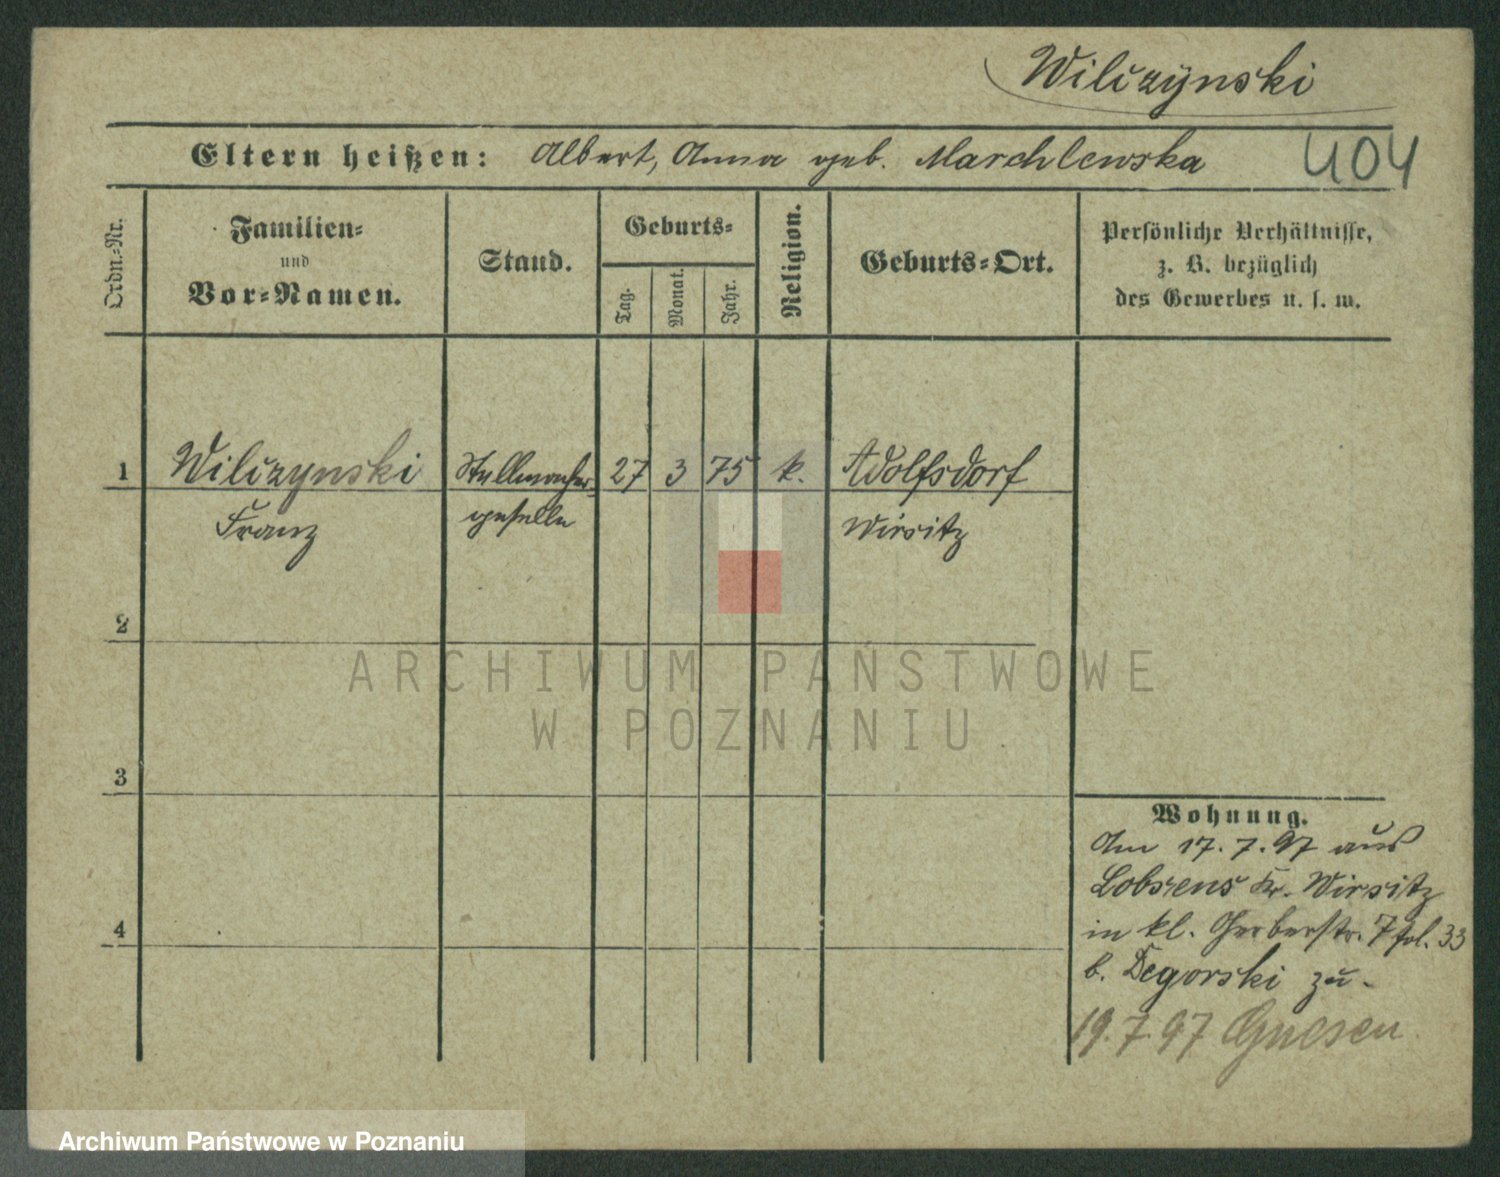 Wilczynski
Eltern heißen: Albert, Anna geb. Marchlewska
404
Ordn.-Nr.
Familien-
und
Vor-Namen.
Stand.
Geburts-
Tag.
Monat.
Jahr.
Religion.
Geburts-Ort.
Persönliche Verhältnisse,
z. B. bezüglich
des Gewerbes u. s. w.
1 Wilczynski Stellmacher- 27 3 75 k. Adolfsdorf
Franz geselle Wirsitz
2
3
4
Wohnung.
Am 17.7.97 aus
Lobsens Kr. Wirsitz
in kl. Gerberstr. 7 pol. 33
b. Degorski zu.
19.7.97 Gnesen
ARCHIWUM PAŃSTWOWE
W POZNANIU
Archiwum Państwowe w Poznaniu